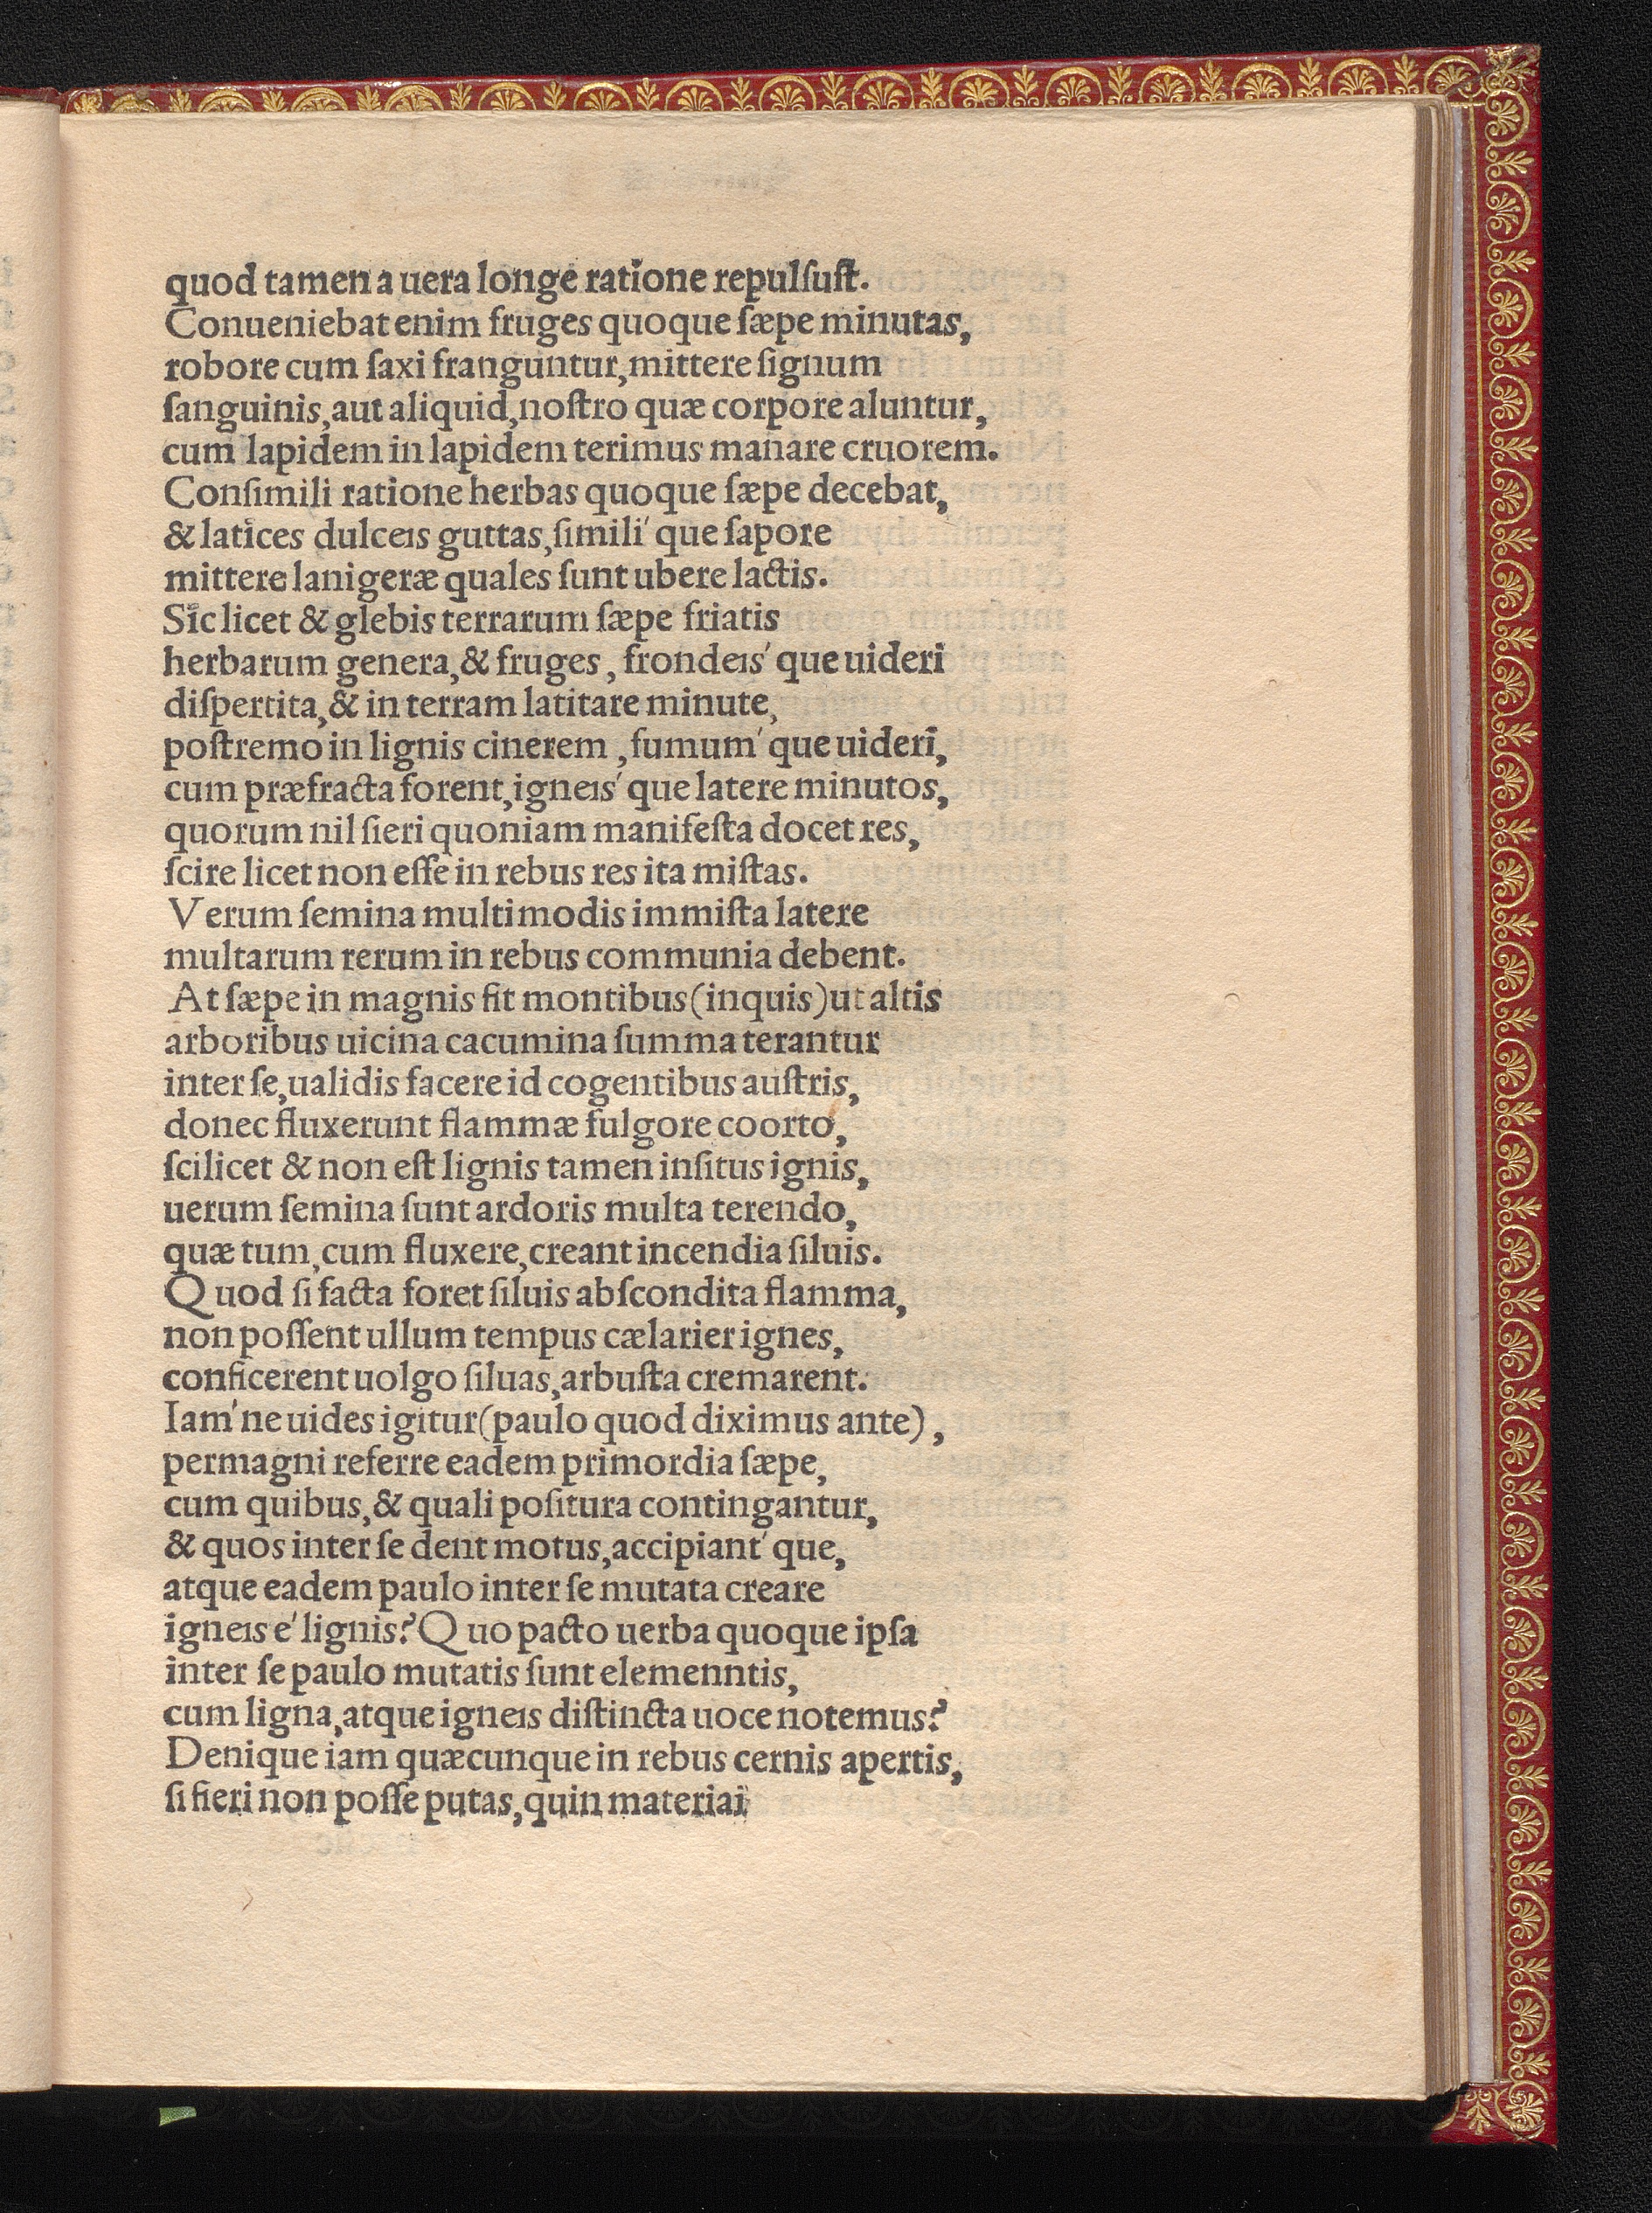 quod tamen a uera longe ratione repulſuſt.
Conueniebat enim fruges quoque ſæpe minutas,
robore cum ſaxi franguntur, mittere ſignum
ſanguinis, aut aliquid, noſtro quæ corpore aluntur,
cum lapidem in lapidem terimus manare cruorem.
Conſimili ratione herbas quoque ſæpe decebat,
& latices dulceis guttas, ſimili´ que ſapore
mittere lanigeræ quales ſunt ubere lactis.
Sic licet & glebis terrarum ſæpe friatis
herbarum genera, & fruges, frondeis´ que uideri
diſpertita, & in terram latitare minute,
poſtremo in lignis cinerem, fumum´ que uideri,
cum præfracta forent, igneis´ que latere minutos,
quorum nil fieri quoniam manifeſta docet res,
ſcire licet non eſſe in rebus res ita miſtas.
Verum ſemina multimodis immiſta latere
multarum rerum in rebus communia debent.
At ſæpe in magnis fit montibus (inquis) ut altis
arboribus uicina cacumina ſumma terantur
inter ſe, ualidis facere id cogentibus auſtris,
donec fluxerunt flammæ fulgore coorto,
ſcilicet & non eſt lignis tamen inſitus ignis,
uerum ſemina ſunt ardoris multa terendo,
quæ tum, cum fluxere, creant incendia ſiluis.
Quod ſi facta foret ſiluis abſcondita flamma,
non poſſent ullum tempus cælarier ignes,
conficerent uolgo ſiluas, arbuſta cremarent.
Iam´ne uides igitur (paulo quod diximus ante),
permagni referre eadem primordia ſæpe,
cum quibus, & quali poſitura contingantur,
& quos inter ſe dent motus, accipiant´ que,
atque eadem paulo inter ſe mutata creare
igneis e´ lignis? Quo pacto uerba quoque ipſa
inter ſe paulo mutatis ſunt elemenntis,
cum ligna, atque igneis diſtincta uoce notemus?
Denique iam quæcunque in rebus cernis apertis,
ſi fieri non poſſe putas, quin materiai